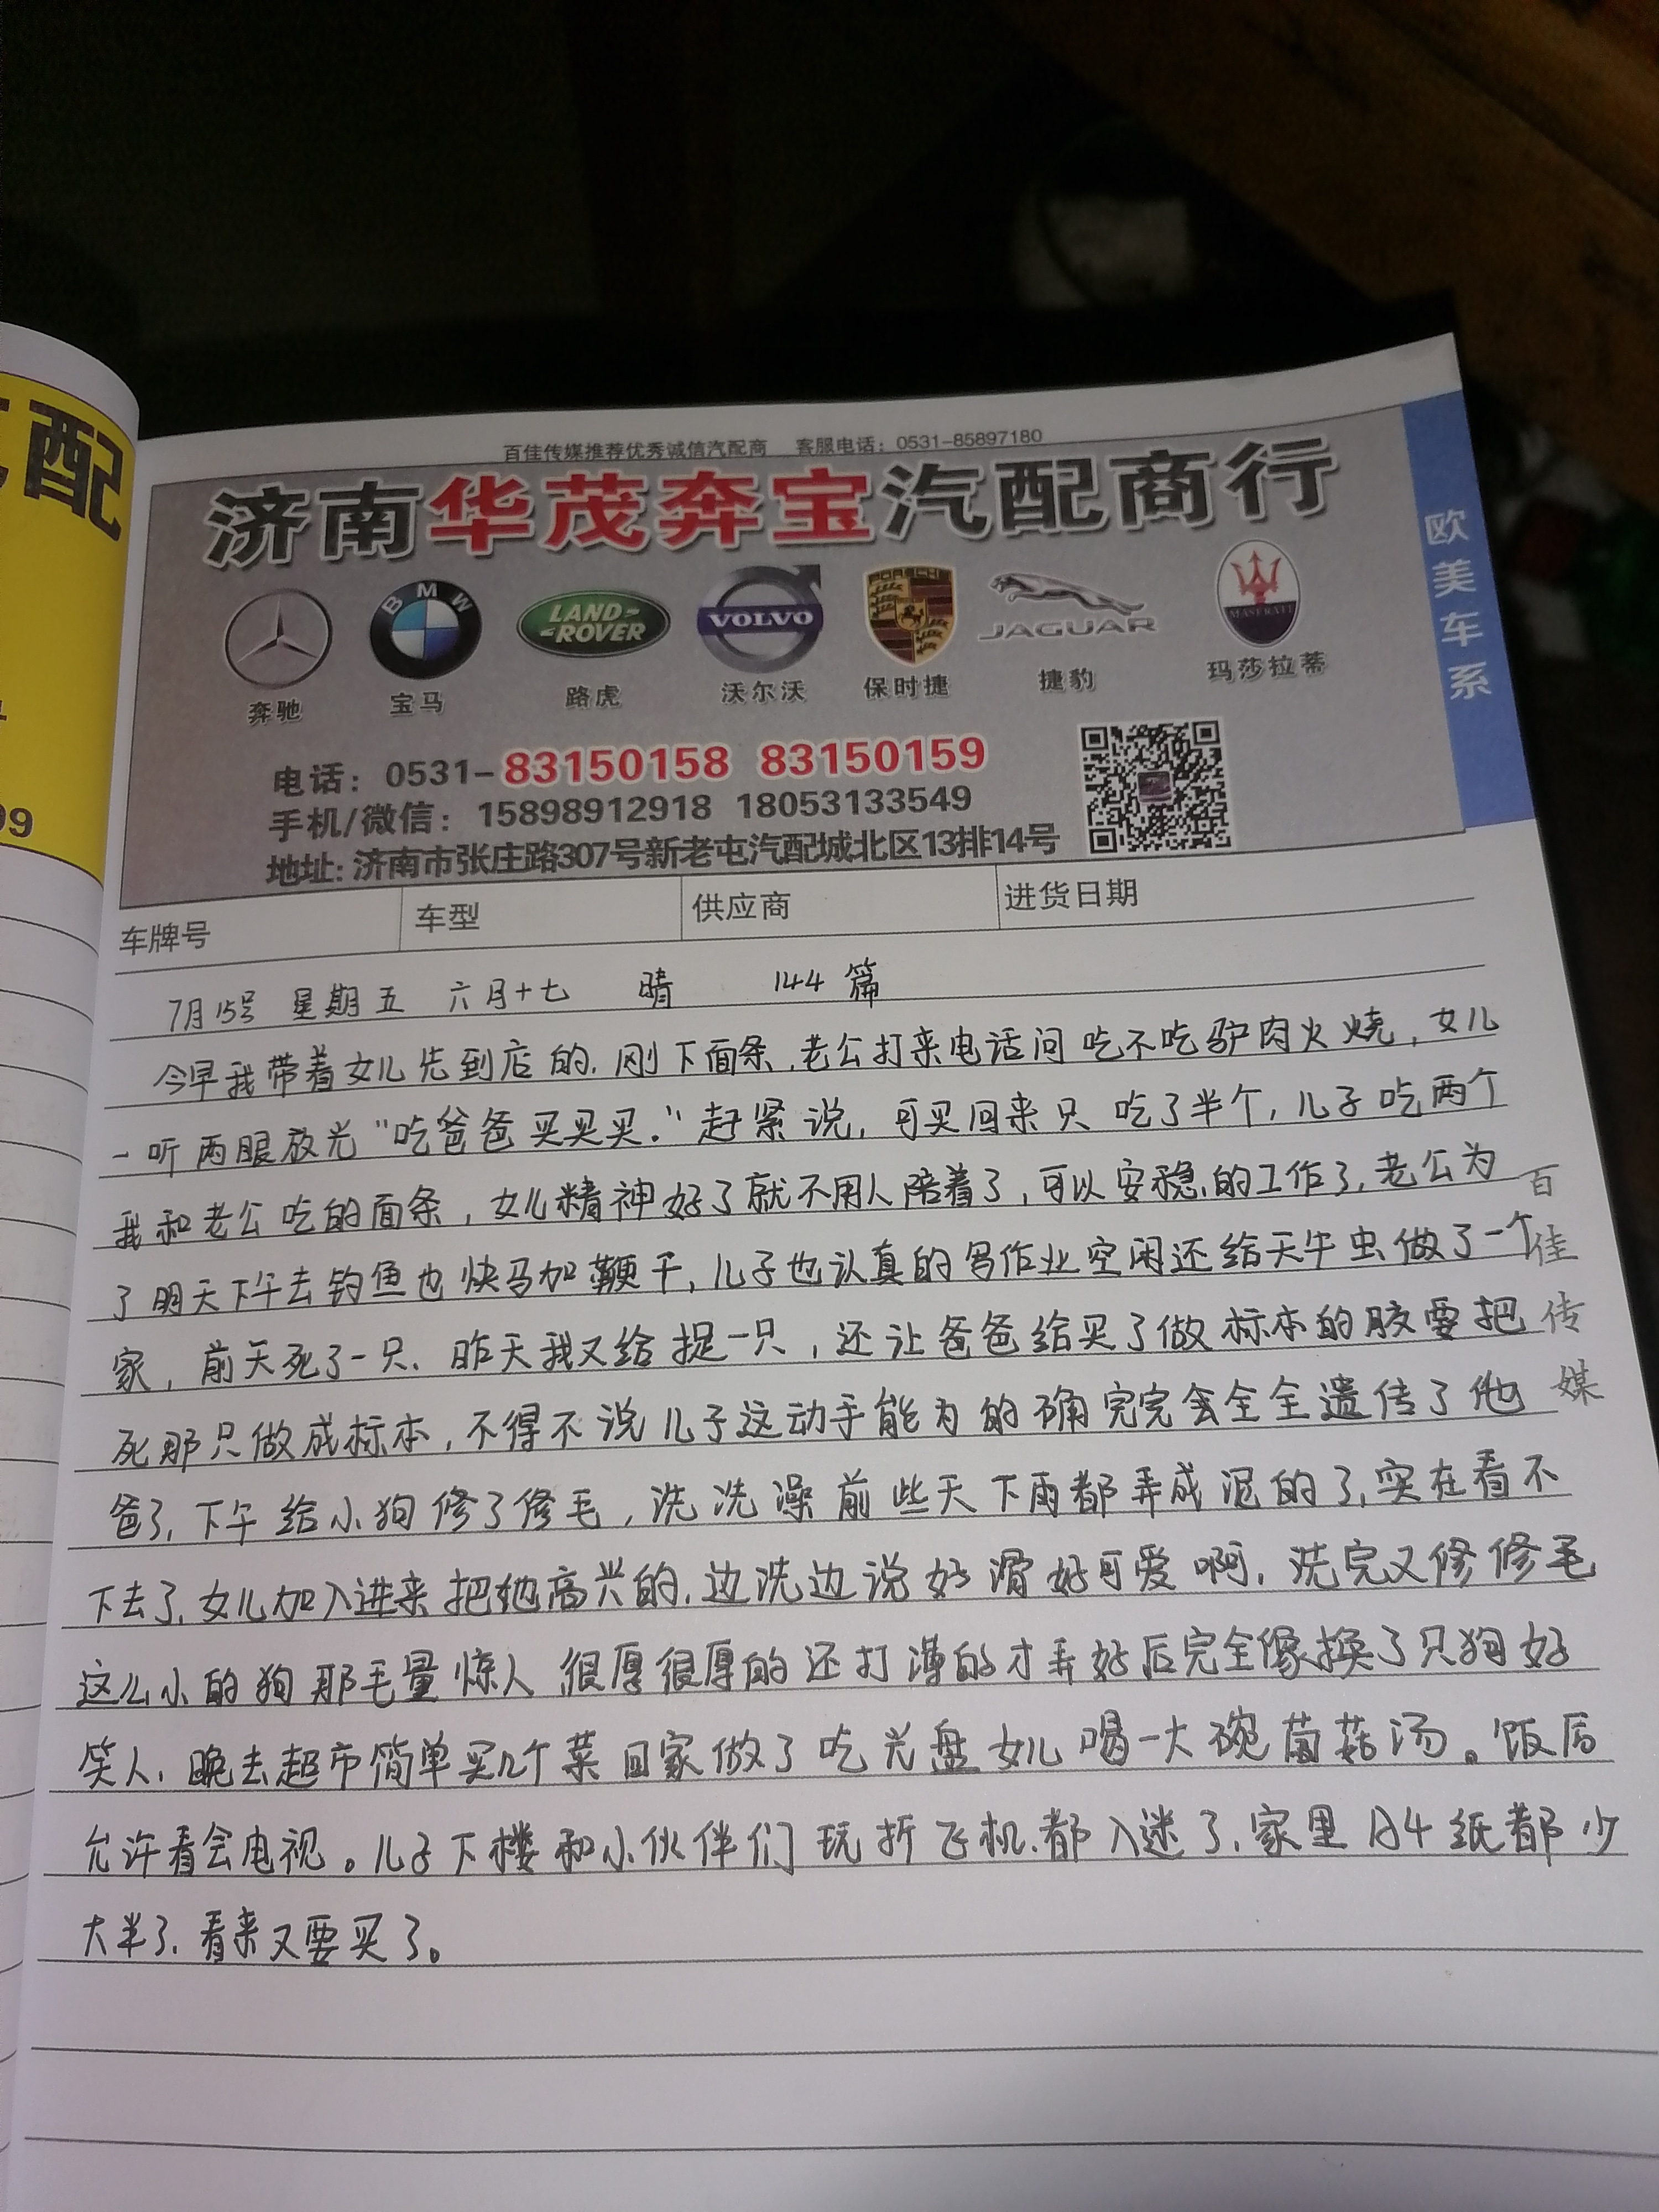 配
99
百佳传媒推荐优秀诚信汽配商 客服电话：0531-85897180
济南华茂奔宝汽配商行
欧美车系
BMW
LAND-ROVER
VOLVO
PORSCHE
JAGUAR
MASERATI
奔驰 宝马 路虎 沃尔沃 保时捷 捷豹 玛莎拉蒂
电话：0531-83150158 83150159
手机/微信：15898912918 18053133549
地址：济南市张庄路307号新老屯汽配城北区13排14号
车牌号 车型 供应商 进货日期
7月15号 星期五 六月十七 晴 144篇
今早我带着女儿先到店的.刚下面条.老公打来电话问吃不吃驴肉火烧,女儿
一听两眼放光"吃爸爸买买买."赶紧说,可买回来只吃了半个,儿子吃两个
我和老公吃的面条,女儿精神好了就不用人陪着了,可以安稳的工作了.老公为
了明天下午去钓鱼也快马加鞭干,儿子也认真的写作业空闲还给天牛虫做了一个
家,前天死了一只.昨天我又给捉一只,还让爸爸给买了做标本的胶要把
死那只做成标本,不得不说儿子这动手能力的确完完全全遗传了他
爸了,下午给小狗修了修毛,洗洗澡前些天下雨都弄成泥的了,实在看不
下去了,女儿加入进来把她高兴的,边洗边说好滑好可爱啊,洗完又修修毛
这么小的狗那毛量惊人,很厚很厚的还打薄的才弄好后完全像换了只狗好
笑人,晚去超市简单买几个菜回家做了吃光盘女儿喝一大碗菌菇汤。饭后
允许看会电视。儿子下楼和小伙伴们玩折飞机.都入迷了,家里A4纸都少
大半了,看来又要买了。
百佳传媒